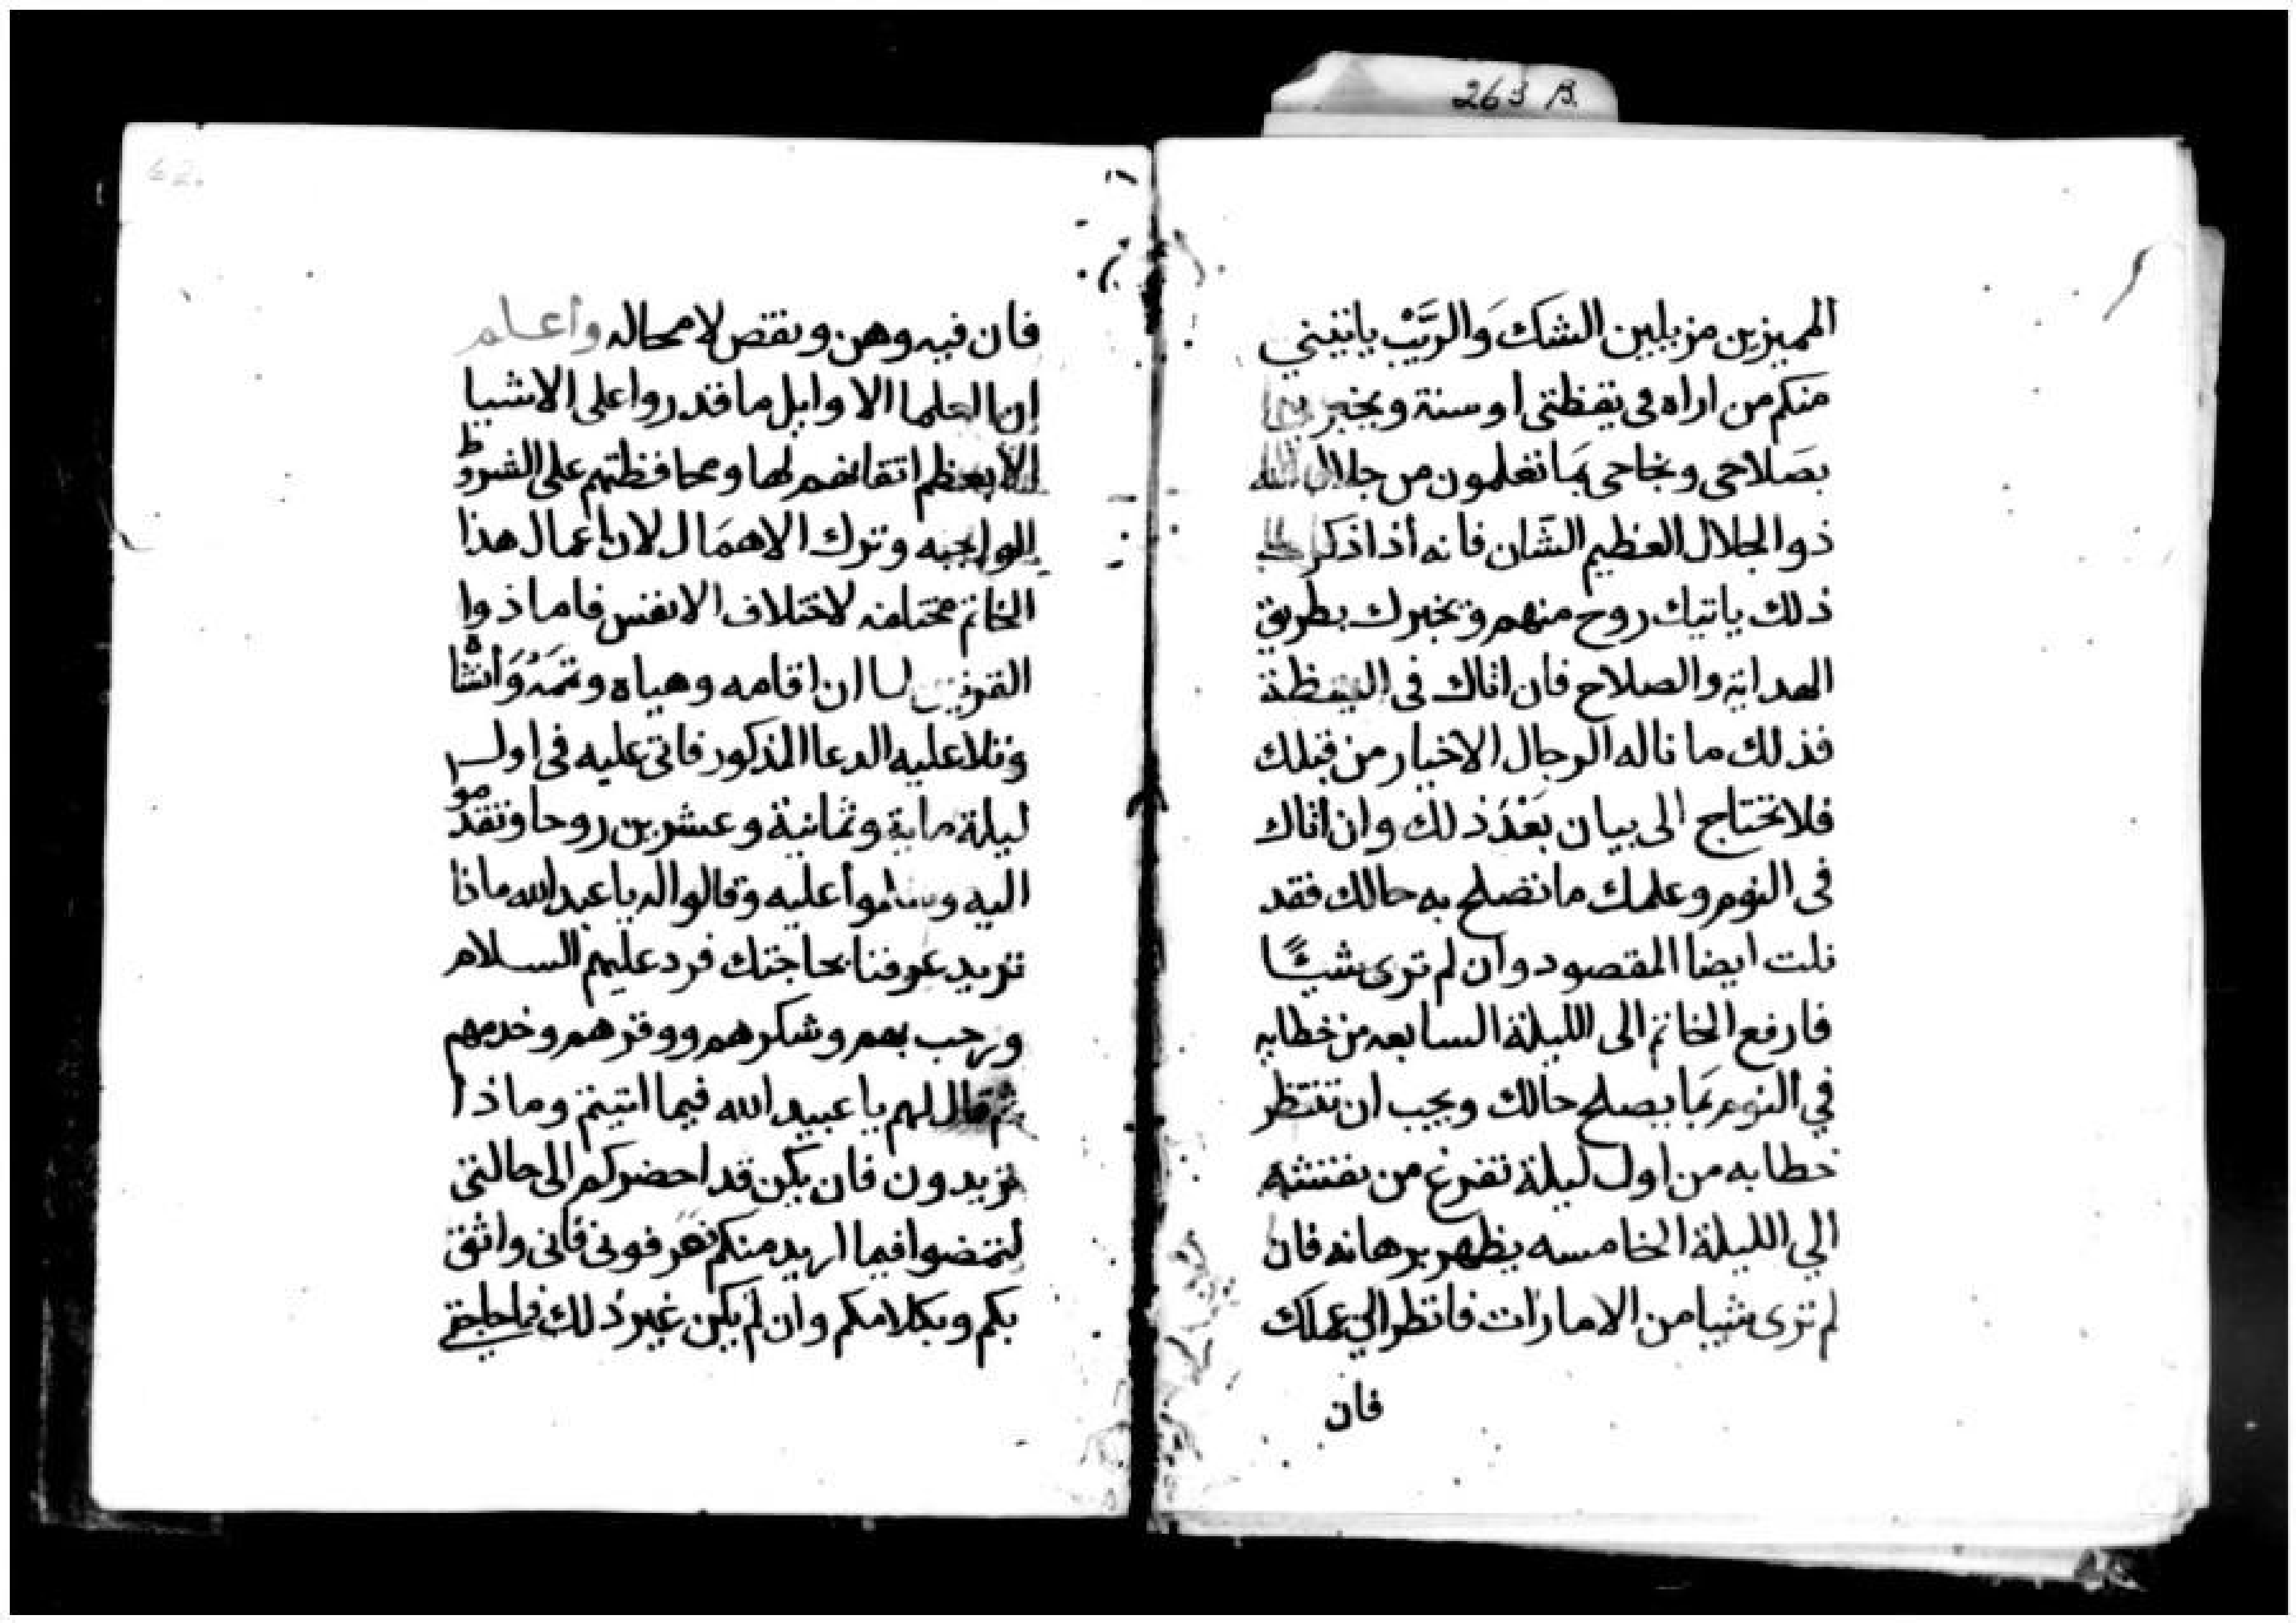 263 B.
المميزين مزيلين الشك وَالرَّيْب ياتيني
منكم من اراه في يقظتى او سنة ويخبرني
بصَلاحى ونجاحى بمَا تعلمون من جلال الله
ذو الجلال العظيم الشَان فانه أذا ذكر
ذلك ياتيك روح منهم ويخبرك بطريق
الهداية والصلاح فان اتاك فى اليقظة
فذلك ما ناله الرجال الاخيار من قبلك
فلا تحتاج الى بيان بَعْدَ ذلك وان اتاك
فى النوم وعلمك ما تصلح به حالك فقد
نلت ايضا المقصود وان لم ترى شيًا
فارفع الخاتم الى الليلة السابعه من خطابه
في النوم بمَا يصلح حالك ويجب ان تنتظر
خطابه من اول ليلة تفرغ من نقشه
الي الليلة الخامسه يظهر برهانه فان
لم ترى شيا من الامارات فانظر الي عملك
فان
62.
فان فيه وهن ونقص لا محاله وأعلم
ان العلما الاوايل ما قدروا على الاشيا
الا بعظم اتقانهم لها ومحافظتهم على الشروط
الواجبه وترك الاهمَال لان اعمال هذا
الخاتم مختلفه لاختلاف الانفس فاما ذوا
القرنين لما ان اقامه وهياه وتممَه وَأنشاه
وتلا عليه الدعا المذكور فاتى عليه فى اول
ليلة ماية وثمانية وعشرين روحا وتقدموا
اليه وسلموأ عليه وقالوا له يا عبد الله ماذا
تريد عرفنا بحاجتك فرد عليهم السلام
ورحب بهم وشكرهم ووقرهم وخدمهم
ثم قال لهم يا عبيد الله فيما اتيتم وماذا
تريدون فان يكن قد احضركم الى حالتى
لتمضوا فيما اريد منكم فعَرفونى فانى واثق
بكم وبكلامكم وان لم يكن غير ذلك فما حاجتى